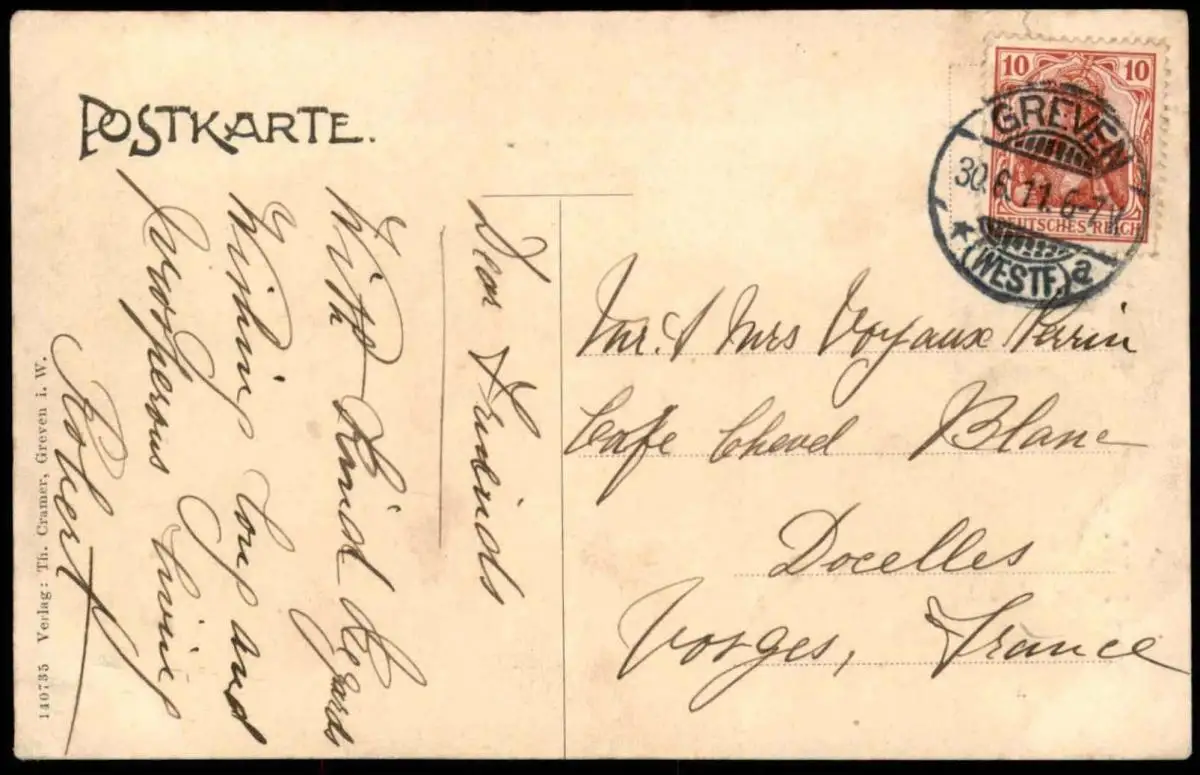 POSTKARTE.
10 10
DEUTSCHES REICH
GREVEN
30.6.11.6-7N
★(WESTF.)a
Mr. & Mrs Voyaux Perrin
Cafe Cheval Blanc
Docelles
Vosges, France
Dear Freinds
With Kind Regards
Wishing Long and
Prosperous Living
Robert
140735 Verlag: Th. Cramer, Greven i. W.